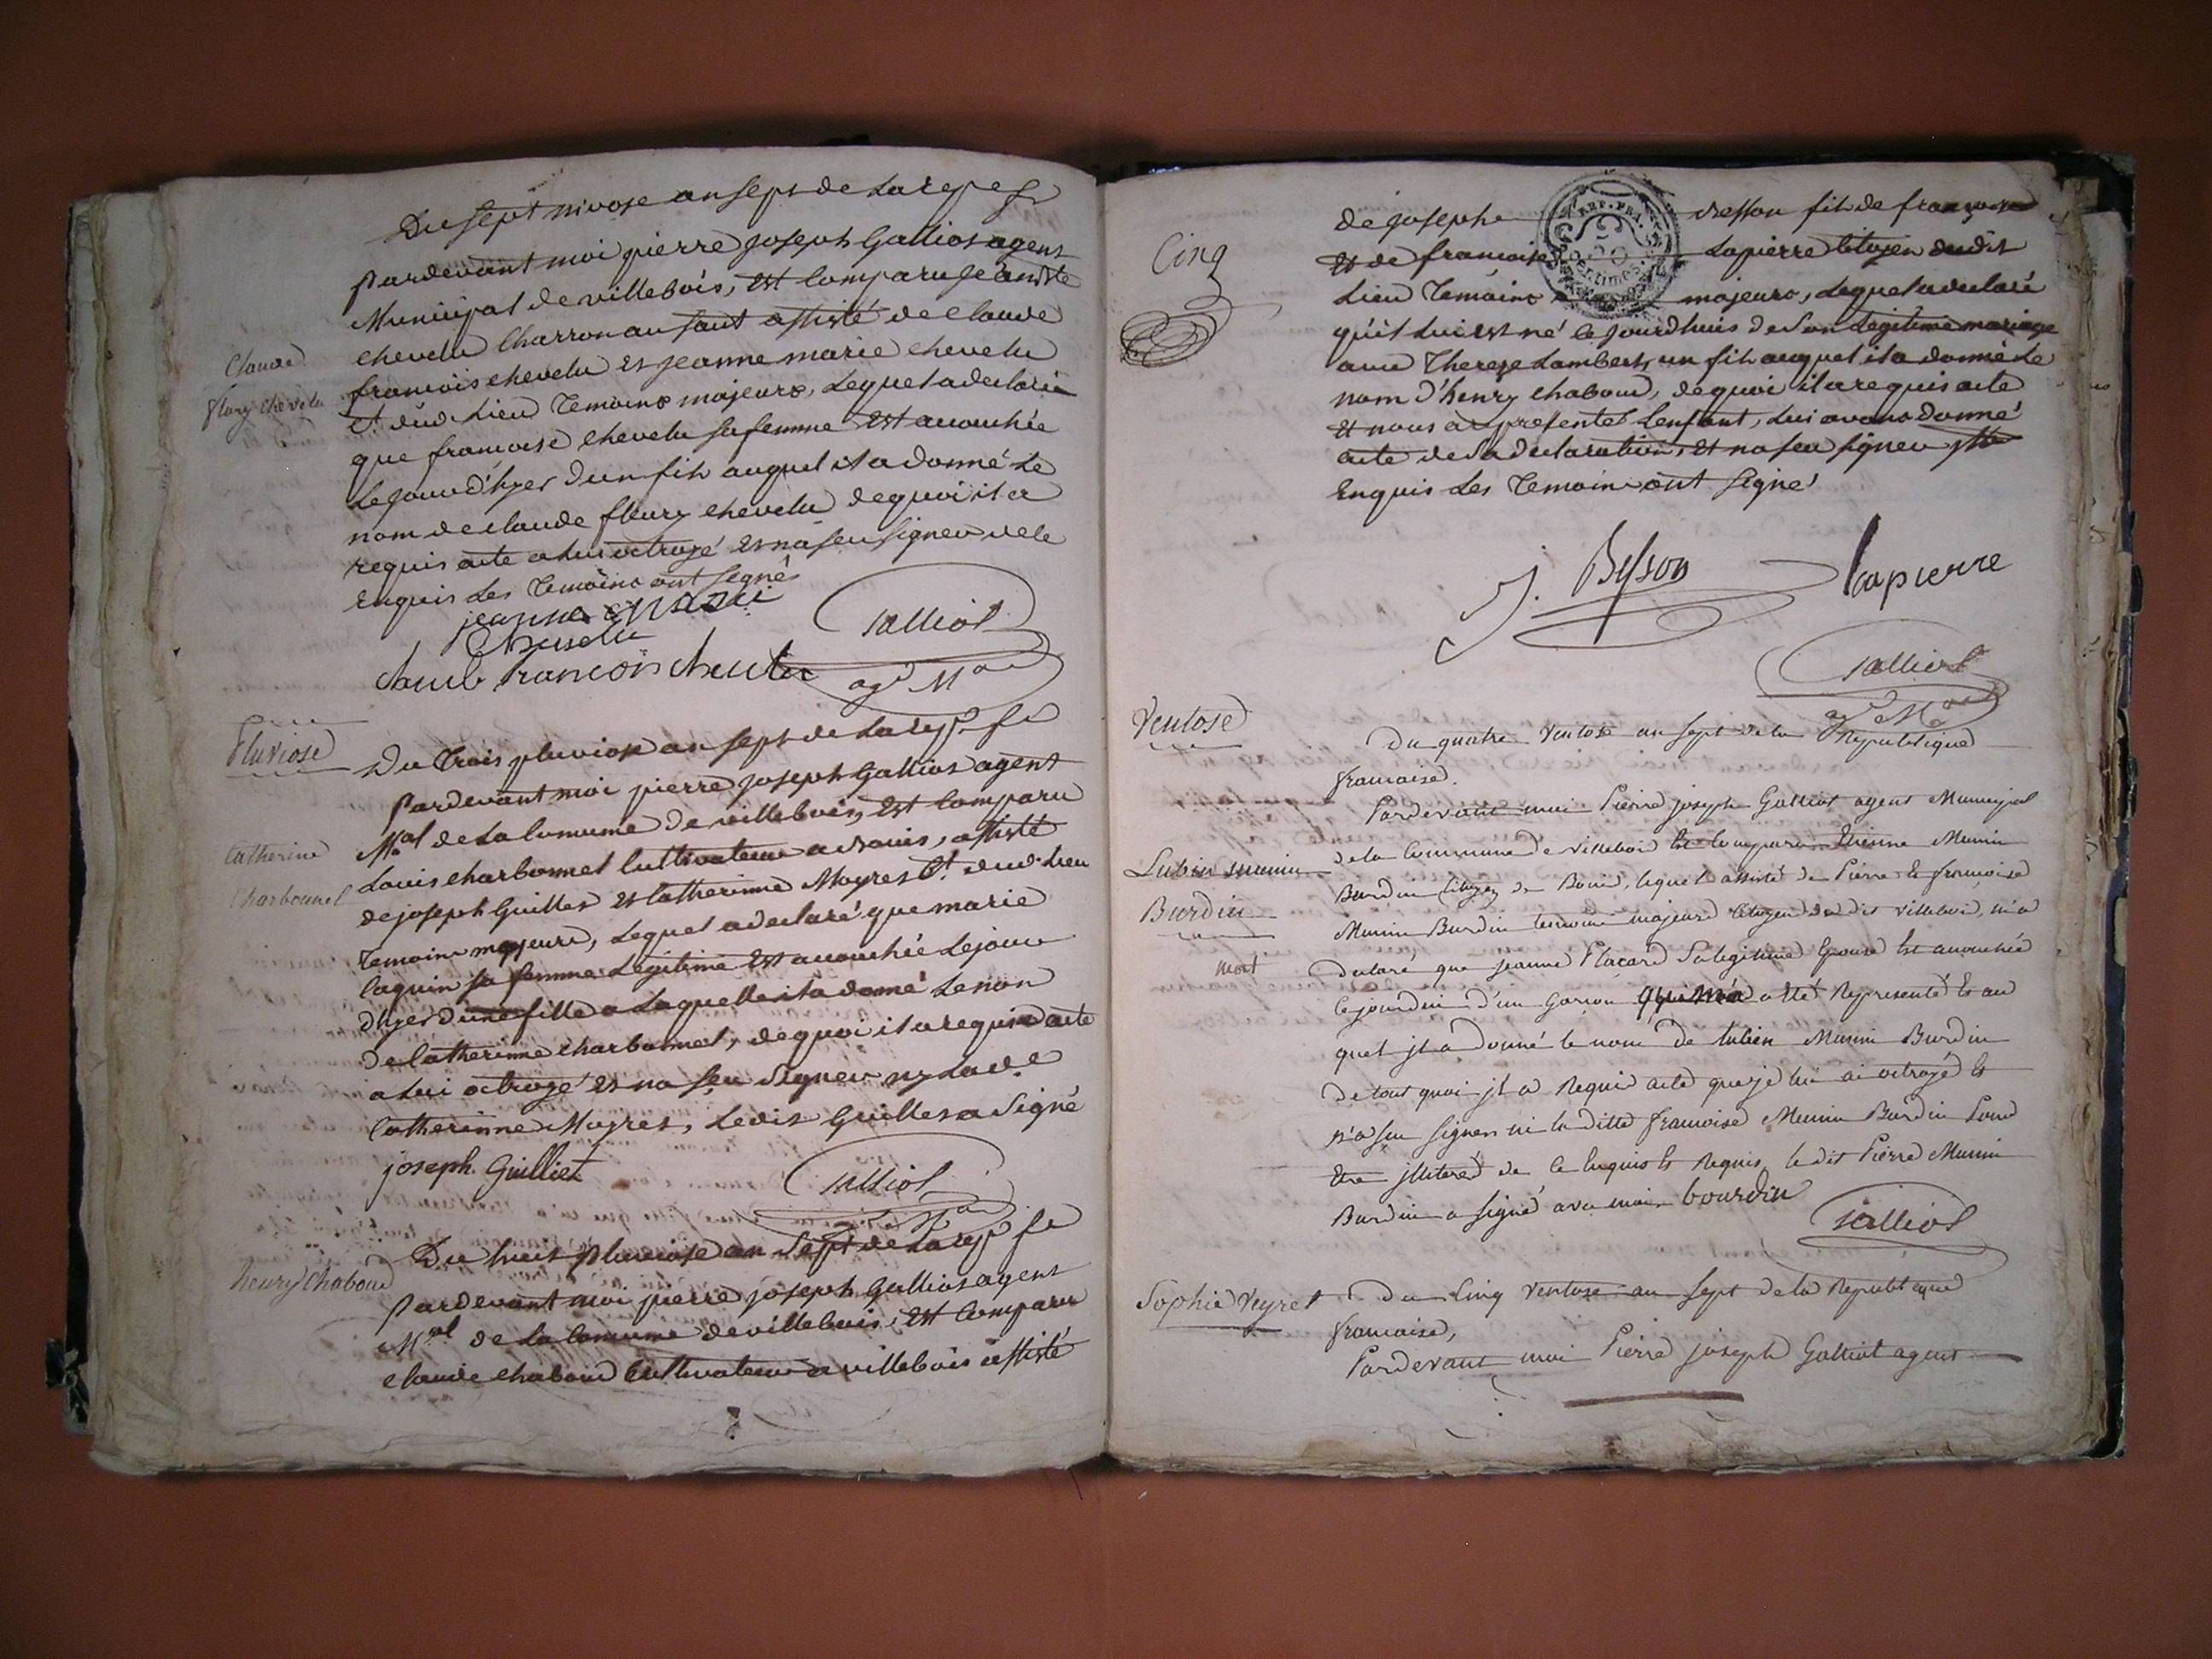 Du sept nivose an sept de la rep fr
Pardevant moi pierre joseph Galliot agent
Municipal de villebois, est comparu jean bte
chevelu Charron au saut assisté de Claude
Claude
fleury chevelu
francois chevelu et jeanne marie chevelu
Ct dud. Lieu Temoins majeurs, Lequel a declaré
que francoise chevelu sa femme est acouchée
Le jour d'hyer d'un fils auquel il a donné Le
nom de claude fleury chevelu de quoi il a
requis acte a lui octroyé et n'a seu signer de ce
Enquis Les Temoins ont signés
jeanne marie
chevelu
francois chevelu
Galliot
agt Mal
Pluviose
Du Trois pluviose an sept de La rep. fr
Pardevant moi pierre joseph Galliot agent
Mal de La Comune de villebois, est Comparu
Catherine
Charbonnel
Louis charbonnel Cultivateur a bouis, assisté
de joseph Guillet et Catherinne Moyret Ct. dud. Lieu
Temoins majeurs, Lequel a declaré que marie
Coquin sa femme Legitime est acouchée Le jour
d'hyer d'une fille a Laquelle il a donné Le nom
de Catherinne charbonnel, de quoi il a requis acte
a Lui octroyé et n'a seu signer ny La de.
Catherinne Moyret, Ledit Guillet a Signé
joseph Guilliet
Galliot
agt Mal
Du huit pluviose an sept de La rep fr
henry Chaboud
Pardevant moi pierre joseph Galliot agent
Mal de La Comune de villebois, est Comparu
claude chaboud Cultivateur a villebois assisté
Cinq
de joseph Besson fils de francois
et de francoise Lapierre Citoyen dudit
Lieu Temoins majeurs, Lequel a declaré
REP. FRA.
qu'il Lui est né le jourdhuis de Son Legitime mariage
avec Thereze Lambert, un fils auquel il a donné Le
nom d'henry chaboud, de quoi il a requis acte
et nous a presenté L'enfant, Lui avons donné
acte de Sa declaration, et n'a seu signer
Enquis Les Temoins ont signé
J. Besson
Lapierre
Galliot
agt Mal
Ventose
Du quatre Ventose an sept de la Republique
francaise.
Pardevant moi Pierre joseph Galliot agent Municipal
de la Commune de villebois est comparu Etienne Munin
Lubin munin
Burdin
mort
Burdin Citoyen de Bouis, lequel assisté de Pierre et francoise
Munin Burdin temoins majeurs Citoyen du dit villebois, m'a
declaré que jeanne Placard Sa legitime Epouse est acouchée
le jourdui d'un garcon qui m'a etté Representé et au
quel jl a donné le nom de lubin Munin Burdin
de tout quoi jl a Requis acte que je lui ai octroyé et
n'a seu signer ni la ditte francoise Munin Burdin Pour
Etre jlliteré de ce Enquis et Requis, le dit Pierre Munin
Burdin a signé avec moi. bourdin
Galliot
Sophie Veyret
Du Cinq Ventose an sept de la Republique
francaise,
Pardevant moi Pierre joseph Galliot agent